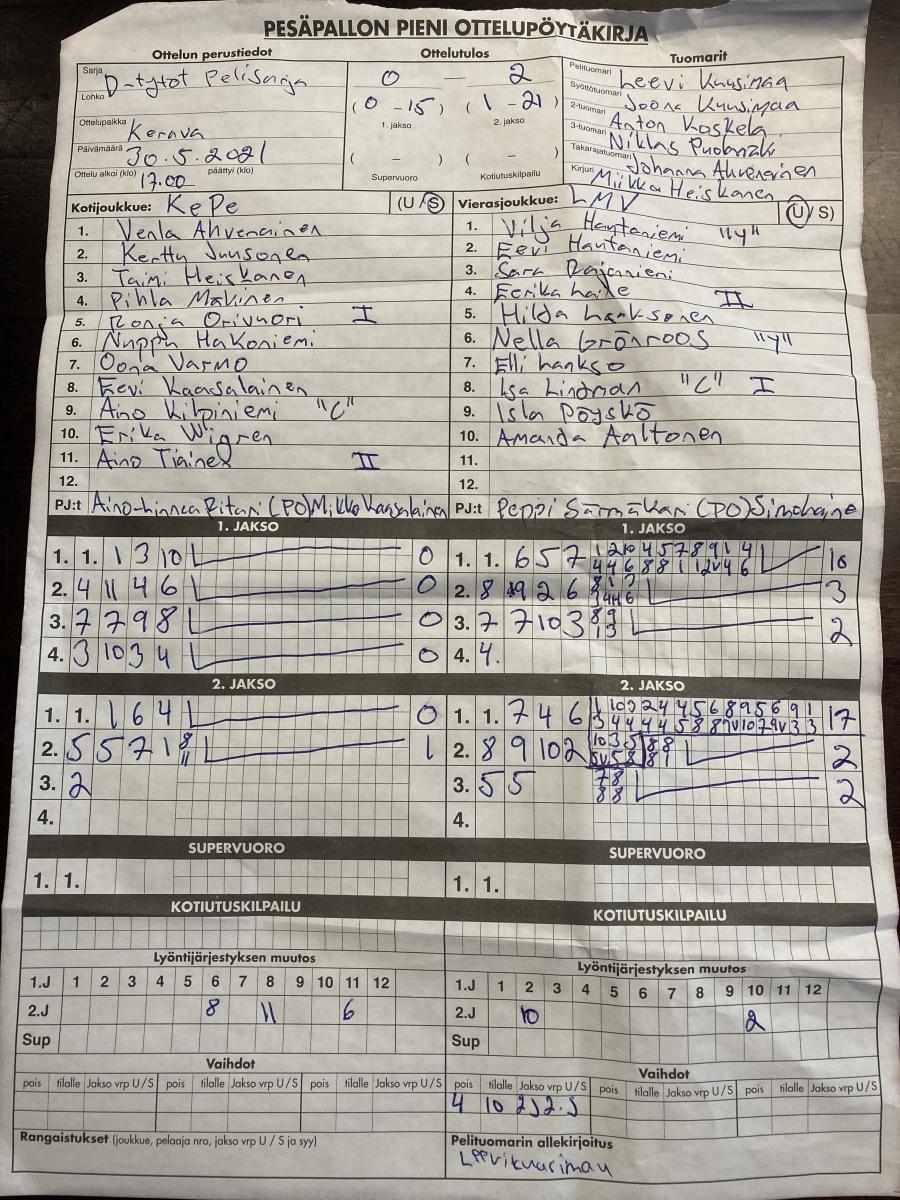 PESÄPALLON PIENI OTTELUPÖYTÄKIRJA
Ottelun perustiedot
Sarja
Lohko
D-tytöt Pelisarja
Ottelupaikka Kerava
Päivämäärä 30.5.2021
Ottelu alkoi (klo) 17.00 päättyi (klo)
Ottelutulos
0 — 2
(0 - 15) (1 - 21)
1. jakso 2. jakso
( - ) ( - )
Supervuoro Kotiutuskilpailu
Tuomarit
Pelituomari Leevi Kuusimaa
Syöttötuomari Joona Kuusimaa
2-tuomari Anton Koskela
3-tuomari Niklas
Takarajatuomari Johanna Ahvenainen
Kirjuri Miikka Heiskanen
Kotijoukkue: KePe (U/S)
1. Venla Ahvenainen
2. Kerttu Juusonen
3. Taimi Heiskanen
4. Pihla Mäkinen
5. Ronja Orivuori I
6. Nuppu Hakoniemi
7. Oona Varmo
8. Eevi Kaasalainen
9. Aino Kilpiniemi "C"
10. Erika Wigren
11. Aino Tiainen II
12.
PJ:t Aino-Linnea Ritari (PO) Mikko Kaasalainen
Vierasjoukkue: LMV (U/S)
1. Vilja Hautaniemi "Y"
2. Eevi Hautaniemi
3. Sara Rajaniemi
4. Eerika II
5. Hilda
6. Nella Grönroos "Y"
7. Elli
8. Isa Lindman "C" I
9. Isla Pöyskö
10. Amanda Aaltonen
11.
12.
PJ:t Peppi (PO)
1. JAKSO
1. 1. 1 3 10 0
2. 4 11 4 6 0
3. 7 7 9 8 0
4. 3 10 3 4 0
1. JAKSO
1. 1. 6 5 7 10
2. 8 9 2 6 3
3. 7 7 10 3 2
4. 4.
2. JAKSO
1. 1. 1 6 4 0
2. 5 5 7 1 8 11 1
3. 2
4.
2. JAKSO
1. 1. 7 4 6 17
2. 8 9 10 2 2
3. 5 5 7 8 8 8 2
4.
SUPERVUORO
1. 1.
SUPERVUORO
1. 1.
KOTIUTUSKILPAILU
KOTIUTUSKILPAILU
Lyöntijärjestyksen muutos
1.J 1 2 3 4 5 6 7 8 9 10 11 12
2.J 8 11 6
Sup
Lyöntijärjestyksen muutos
1.J 1 2 3 4 5 6 7 8 9 10 11 12
2.J 10 2
Sup
Vaihdot
pois tilalle Jakso vrp U/S pois tilalle Jakso vrp U/S pois tilalle Jakso vrp U/S
Vaihdot
pois tilalle Jakso vrp U/S pois tilalle Jakso vrp U/S pois tilalle Jakso vrp U/S
4 10 2J 2.S
Rangaistukset (joukkue, pelaaja nro, jakso vrp U / S ja syy)
Pelituomarin allekirjoitus